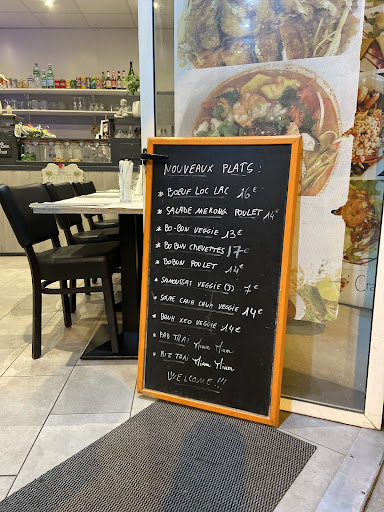 NOUVEAUX PLATS :
* BŒUF LOC LAC 16€
* SALADE MEKONG POULET 14€
* BO-BUN VEGGIE 13€
* BO BUN CREVETTES 17€
* BOBUN POULET 14€
* SAMOUSSAS VEGGIE (3) 7€
* SOUPE CANH CHUA VEGGIE 14€
* BANH XEO VEGGIE 14€
* PAD THAI Miam Miam
* RIZ THAI Miam Miam
WELCOME !!!